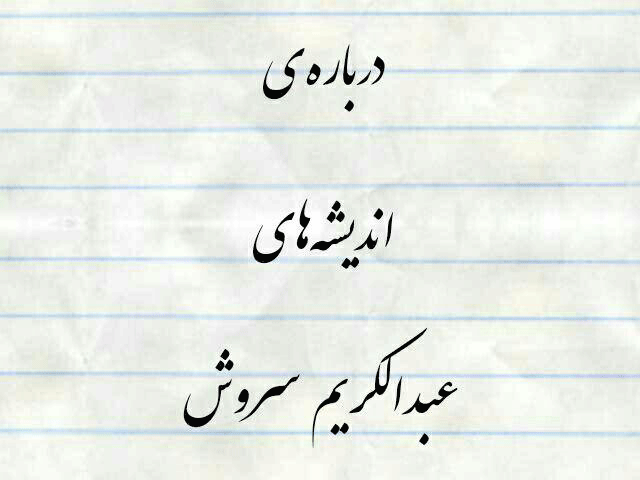 درباره‌ی
اندیشه‌های
عبدالکریم سروش